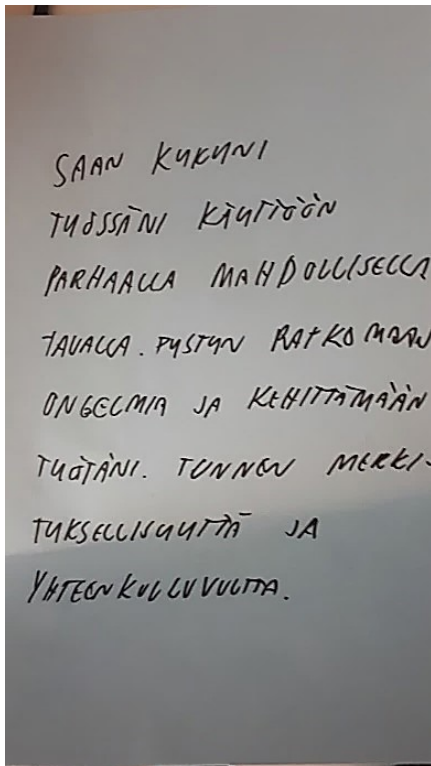 SAAN KYKYNI
TYÖSSÄNI KÄYTTÖÖN
PARHAALLA MAHDOLLISELLA
TAVALLA. PYSTYN RATKOMAAN
ONGELMIA JA KEHITTÄMÄÄN
TYÖTÄNI. TUNNEN MERKI-
TYKSELLISYYTTÄ JA
YHTEENKULUVUUTTA.